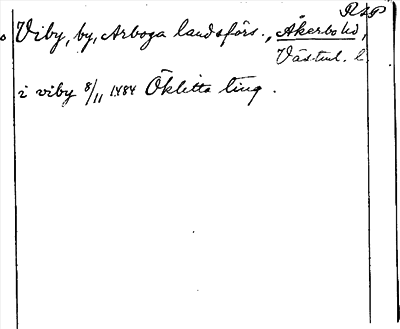 RAP
Viby, by, Arboga landsförs., Åkerbo hd,
Västml. l.
i viby 8/11 1484 Öklitta ting.